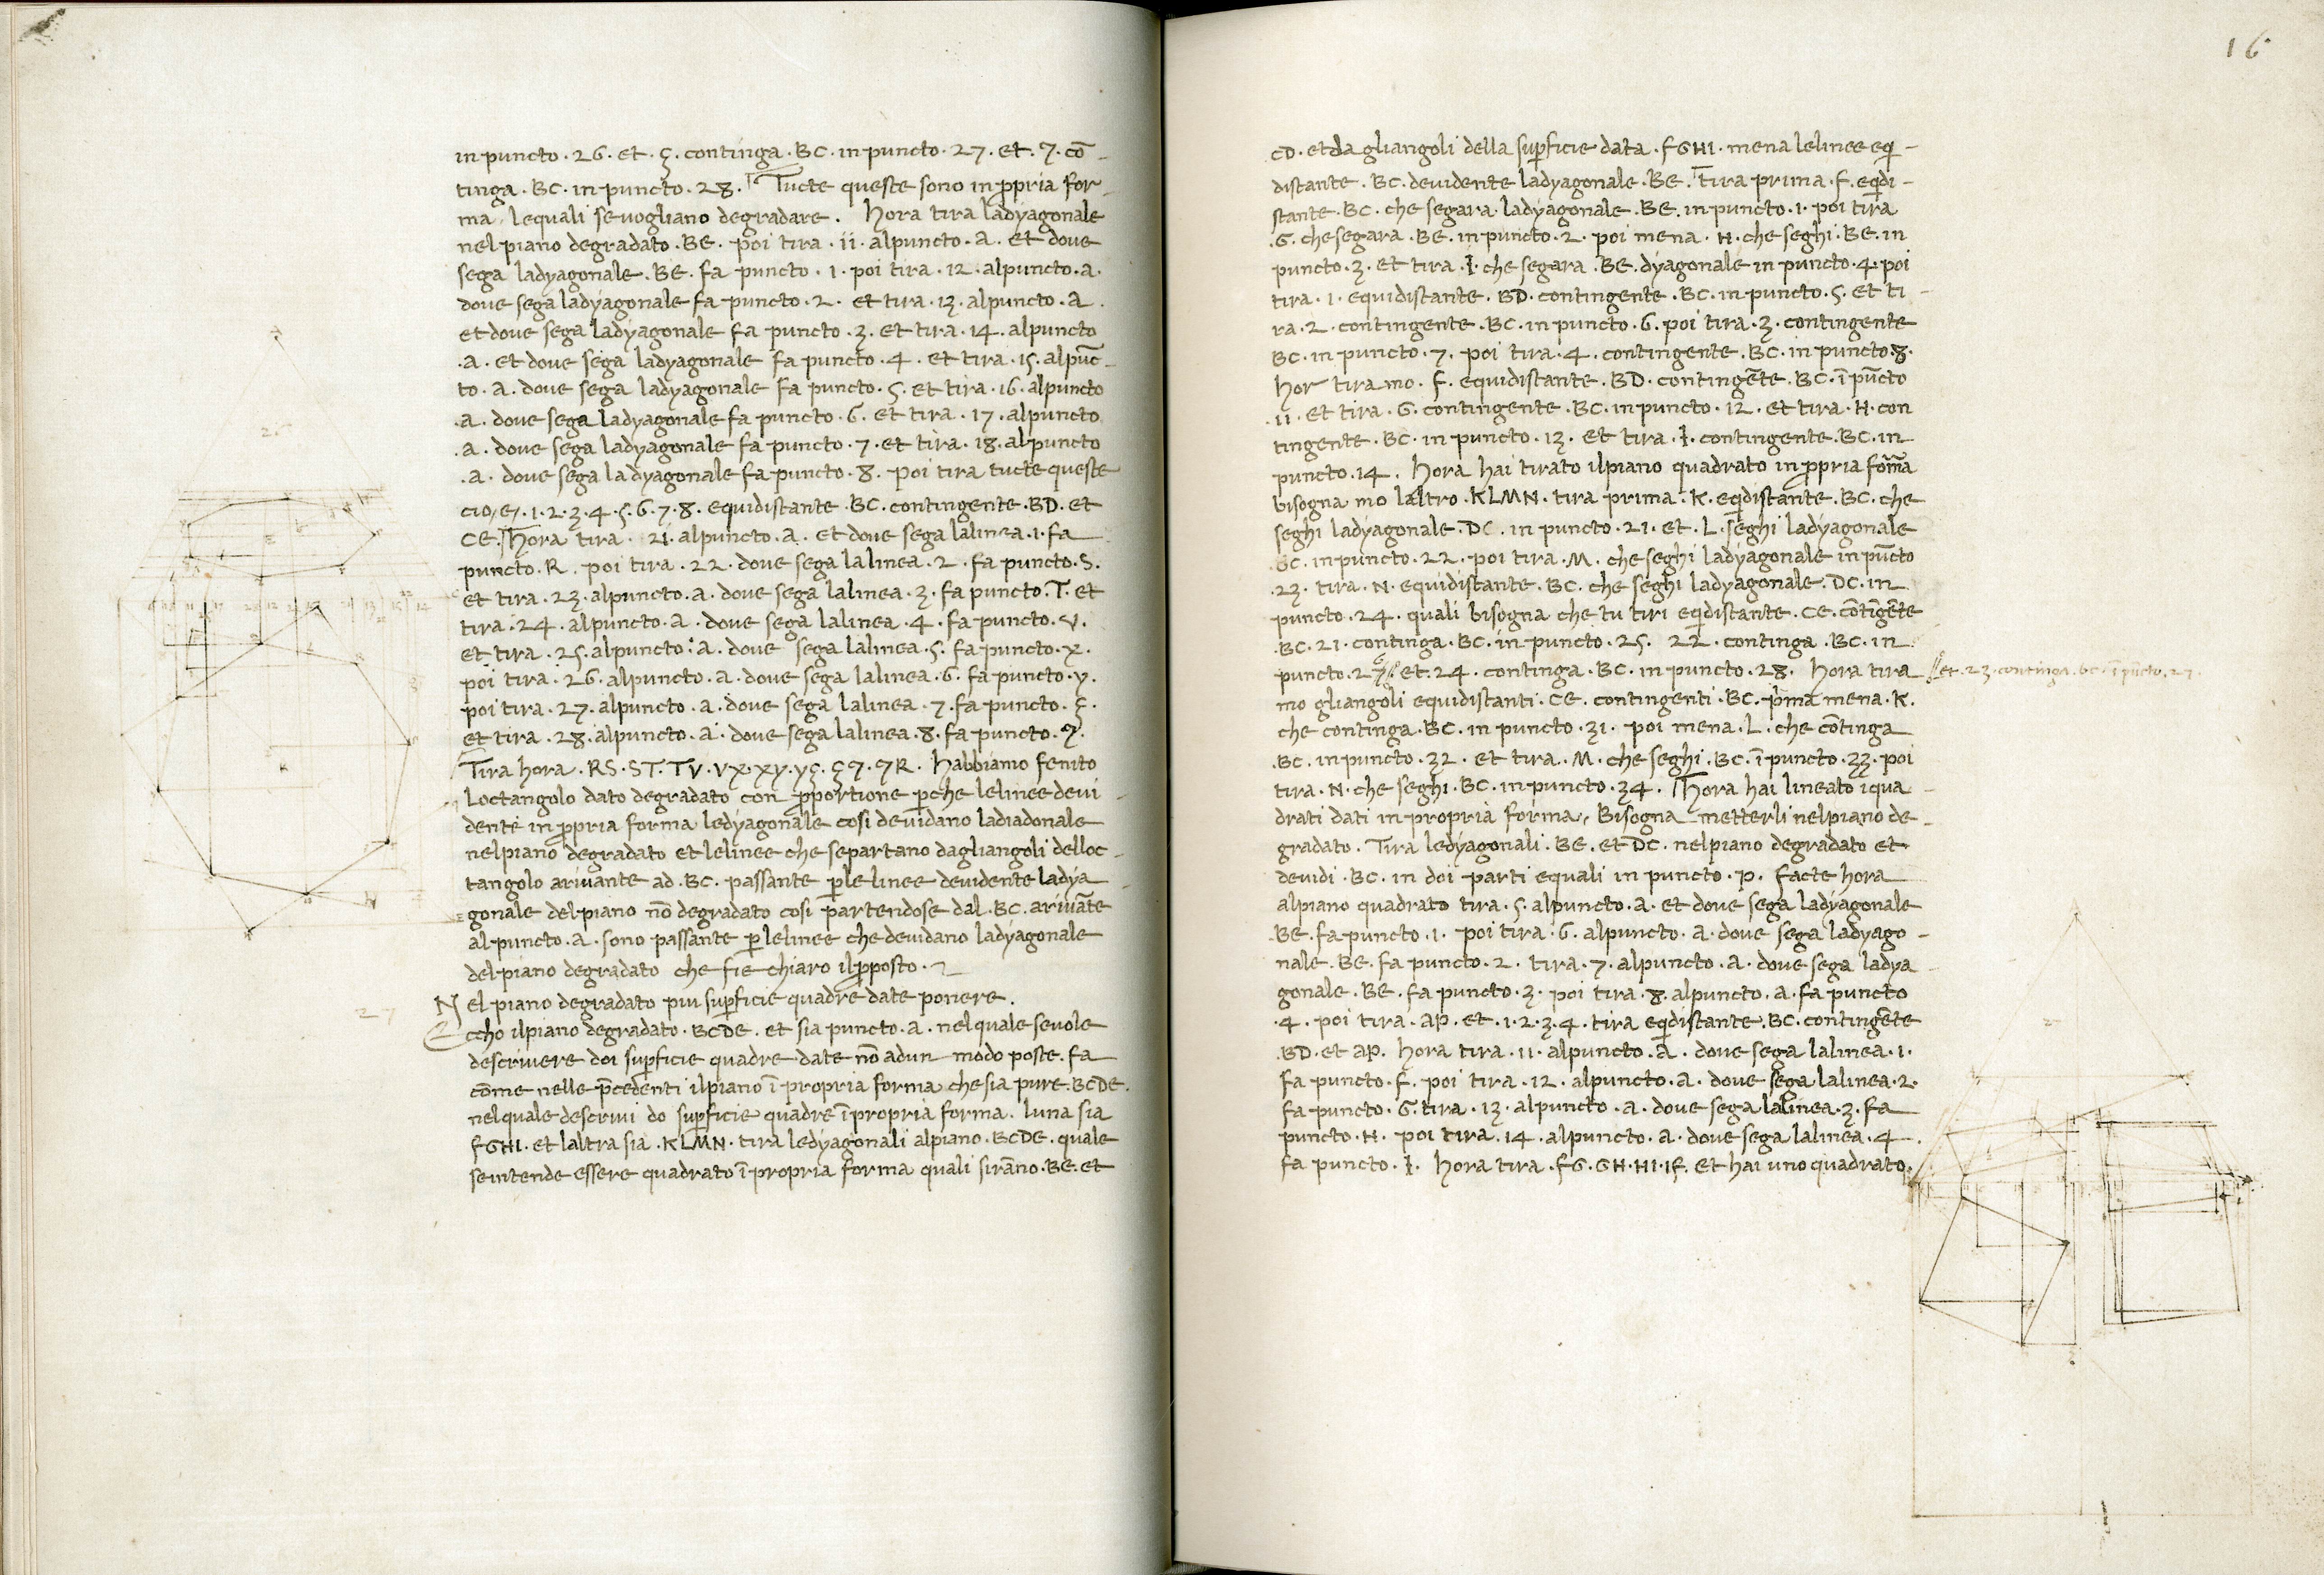 in puncto · 26 · et · ç · continga · BC · in puncto · 27 · et · 7 · cō-
tinga · BC · in puncto · 28 · Tucte queste sono in ꝓpria for-
ma lequali seuogliano degradare . hora tira ladyagonale
nel piano degradato · BE · poi tira · 11 · alpuncto · A · et doue
sega ladyagonale · BE · fa puncto · 1 · poi tira · 12 · alpuncto · A ·
doue sega ladyagonale fa puncto · 2 · et tira · 13 · alpuncto · A ·
et doue sega ladyagonale fa puncto · 3 · et tira · 14 · alpuncto
· A · et doue sega ladyagonale fa puncto · 4 · et tira · 15 · alpūc-
to · A · doue sega ladyagonale fa puncto · 5 · et tira · 16 · alpuncto
· A · doue sega ladyagonale fa puncto · 6 · et tira · 17 · alpuncto
· A · doue sega ladyagonale fa puncto · 7 · et tira · 18 · alpuncto
· A · doue sega ladyagonale fa puncto · 8 · poi tira tucte queste
cio, e, · 1 · 2 · 3 · 4 · 5 · 6 · 7 · 8 · equidistante · BC · contingente · BD · et
CE · Thora tira · 21 · alpuncto · A · et doue sega lalinea · 1 · fa
puncto · R · poi tira · 22 · doue sega lalinea · 2 · fa puncto · S ·
et tira · 23 · alpuncto · A · doue sega lalinea · 3 · fa puncto · T · et
tira · 24 · alpuncto · A · doue sega lalinea · 4 · fa puncto · V ·
et tira · 25 · alpuncto · A · doue sega lalinea · 5 · fa puncto · x ·
poi tira · 26 · alpuncto · A · doue sega lalinea · 6 · fa puncto · y ·
poi tira · 27 · alpuncto · A · doue sega lalinea · 7 · fa puncto · ç ·
et tira · 28 · alpuncto · A · doue sega lalinea · 8 · fa puncto · 7 ·
Tira hora · RS · ST · TV · Vx · xy · yç · ç7 · 7R · habbiamo fenito
loctangolo dato degradato con ꝓportione ꝑche lelinee deui-
dente in ꝓpria forma ledyagonale cosi deuidano ladiadonale
nelpiano degradato et lelinee che separtano dagliangoli delloc-
tangolo ariuante ad · BC · passante ꝑle linee deuidente ladya-
gonale delpiano nō degradato cosi partendose dal · BC · ariuāte
al puncto · A · sono passante ꝑ lelinee che deuidano ladyagonale
del piano degradato che fie chiaro ilꝓposto ·
27 Nel piano degradato piu suꝑficie quadre date ponere .
Eccho ilpiano degradato · BCDE · et sia puncto · A · nelquale seuole
descriuere doi suꝑficie quadre date nō adun modo poste · fa
cōme nelle p̄cedenti ilpiano ī propria forma che sia pure · BCDE ·
nelquale descriui do suꝑficie quadre ī propria forma · luna sia
FGHI · et laltra sia · KLMN · tira ledyagonali alpiano · BCDE · quale
sentende essere quadrato ī propria forma quali sirāno · BE · et
16
CD · et da gliangoli della suꝑficie data · FGHI · mena lelinee eq̄i-
distante · BC · deuidente ladyagonale · BE · Tira prima · F · eq̄di-
stante · BC · che segara ladyagonale · BE · in puncto · 1 · poi tira
· G · che segara · BE · in puncto · 2 · poi mena · H · che seghi · BE · in
puncto · 3 · et tira · I · che segara · BE · dyagonale in puncto · 4 · poi
tira · 1 · equidistante · BD · contingente · BC · in puncto · 5 · et ti-
ra · 2 · contingente · BC · in puncto · 6 · poi tira · 3 · contingente
BC · in puncto · 7 · poi tira · 4 · contingente · BC · in puncto · 8 ·
hor tira mo · F · equidistante · BD · contingēte · BC · ī pūcto
· 11 · et tira · G · contingente · BC · in puncto · 12 · et tira · H · con
tingente · BC · in puncto · 13 · et tira · I · contingente · BC · in
puncto · 14 · hora hai tirato ilpiano quadrato in ꝓpria forma
bisogna mo laltro · KLMN · tira prima · K · eq̄distante · BC · che
seghi ladyagonale · DC · in puncto · 21 · et · L · seghi ladyagonale
DC · in puncto · 22 · poi tira · M · che seghi ladyagonale in pūcto
· 23 · tira · N · equidistante · BC · che seghi ladyagonale · DC · in
puncto · 24 · quali bisogna che tu tiri eq̄distante · CE · cōtīgēte
BC · 21 · continga · BC · in puncto · 25 · 22 · continga · BC · in
puncto · 26 · et · 24 · continga · BC · in puncto · 28 · hora tira
et · 23 · continga · bc · ī pūcto · 27 ·
mo gliangoli equidistanti · CE · contingenti · BC · p̄ma mena · K ·
che continga · BC · in puncto · 31 · poi mena · L · che cōtinga
· BC · in puncto · 32 · et tira · M · che seghi · BC · ī puncto · 33 · poi
tira · N · che seghi · BC · in puncto · 34 · Thora hai lineato iqua-
drati dati in propria forma, Bisogna metterli nelpiano de-
gradato . Tira ledyagonali · BE · et DC · nelpiano degradato et
deuidi · BC · in doi parti equali in puncto · P · facte hora
alpiano quadrato tira · 5 · alpuncto · A · et doue sega ladyagonale
BE · fa puncto · 1 · poi tira · 6 · alpuncto · A · doue sega ladyago-
nale · BE · fa puncto · 2 · tira · 7 · alpuncto · A · doue sega ladya-
gonale · BE · fa puncto · 3 · poi tira · 8 · alpuncto · A · fa puncto
· 4 · poi tira · AP · et · 1 · 2 · 3 · 4 · tira eq̄distante · BC · contingēte
· BD · et AP · hora tira · 11 · alpuncto · A · doue sega lalinea · 1 ·
fa puncto · F · poi tira · 12 · alpuncto · A · doue sega lalinea · 2 ·
fa puncto · G · tira · 13 · alpuncto · A · doue sega lalinea · 3 · fa
puncto · H · poi tira · 14 · alpuncto · A · doue sega lalinea · 4 ·
fa puncto · I · hora tira · FG · GH · HI · IF · et hai uno quadrato ·